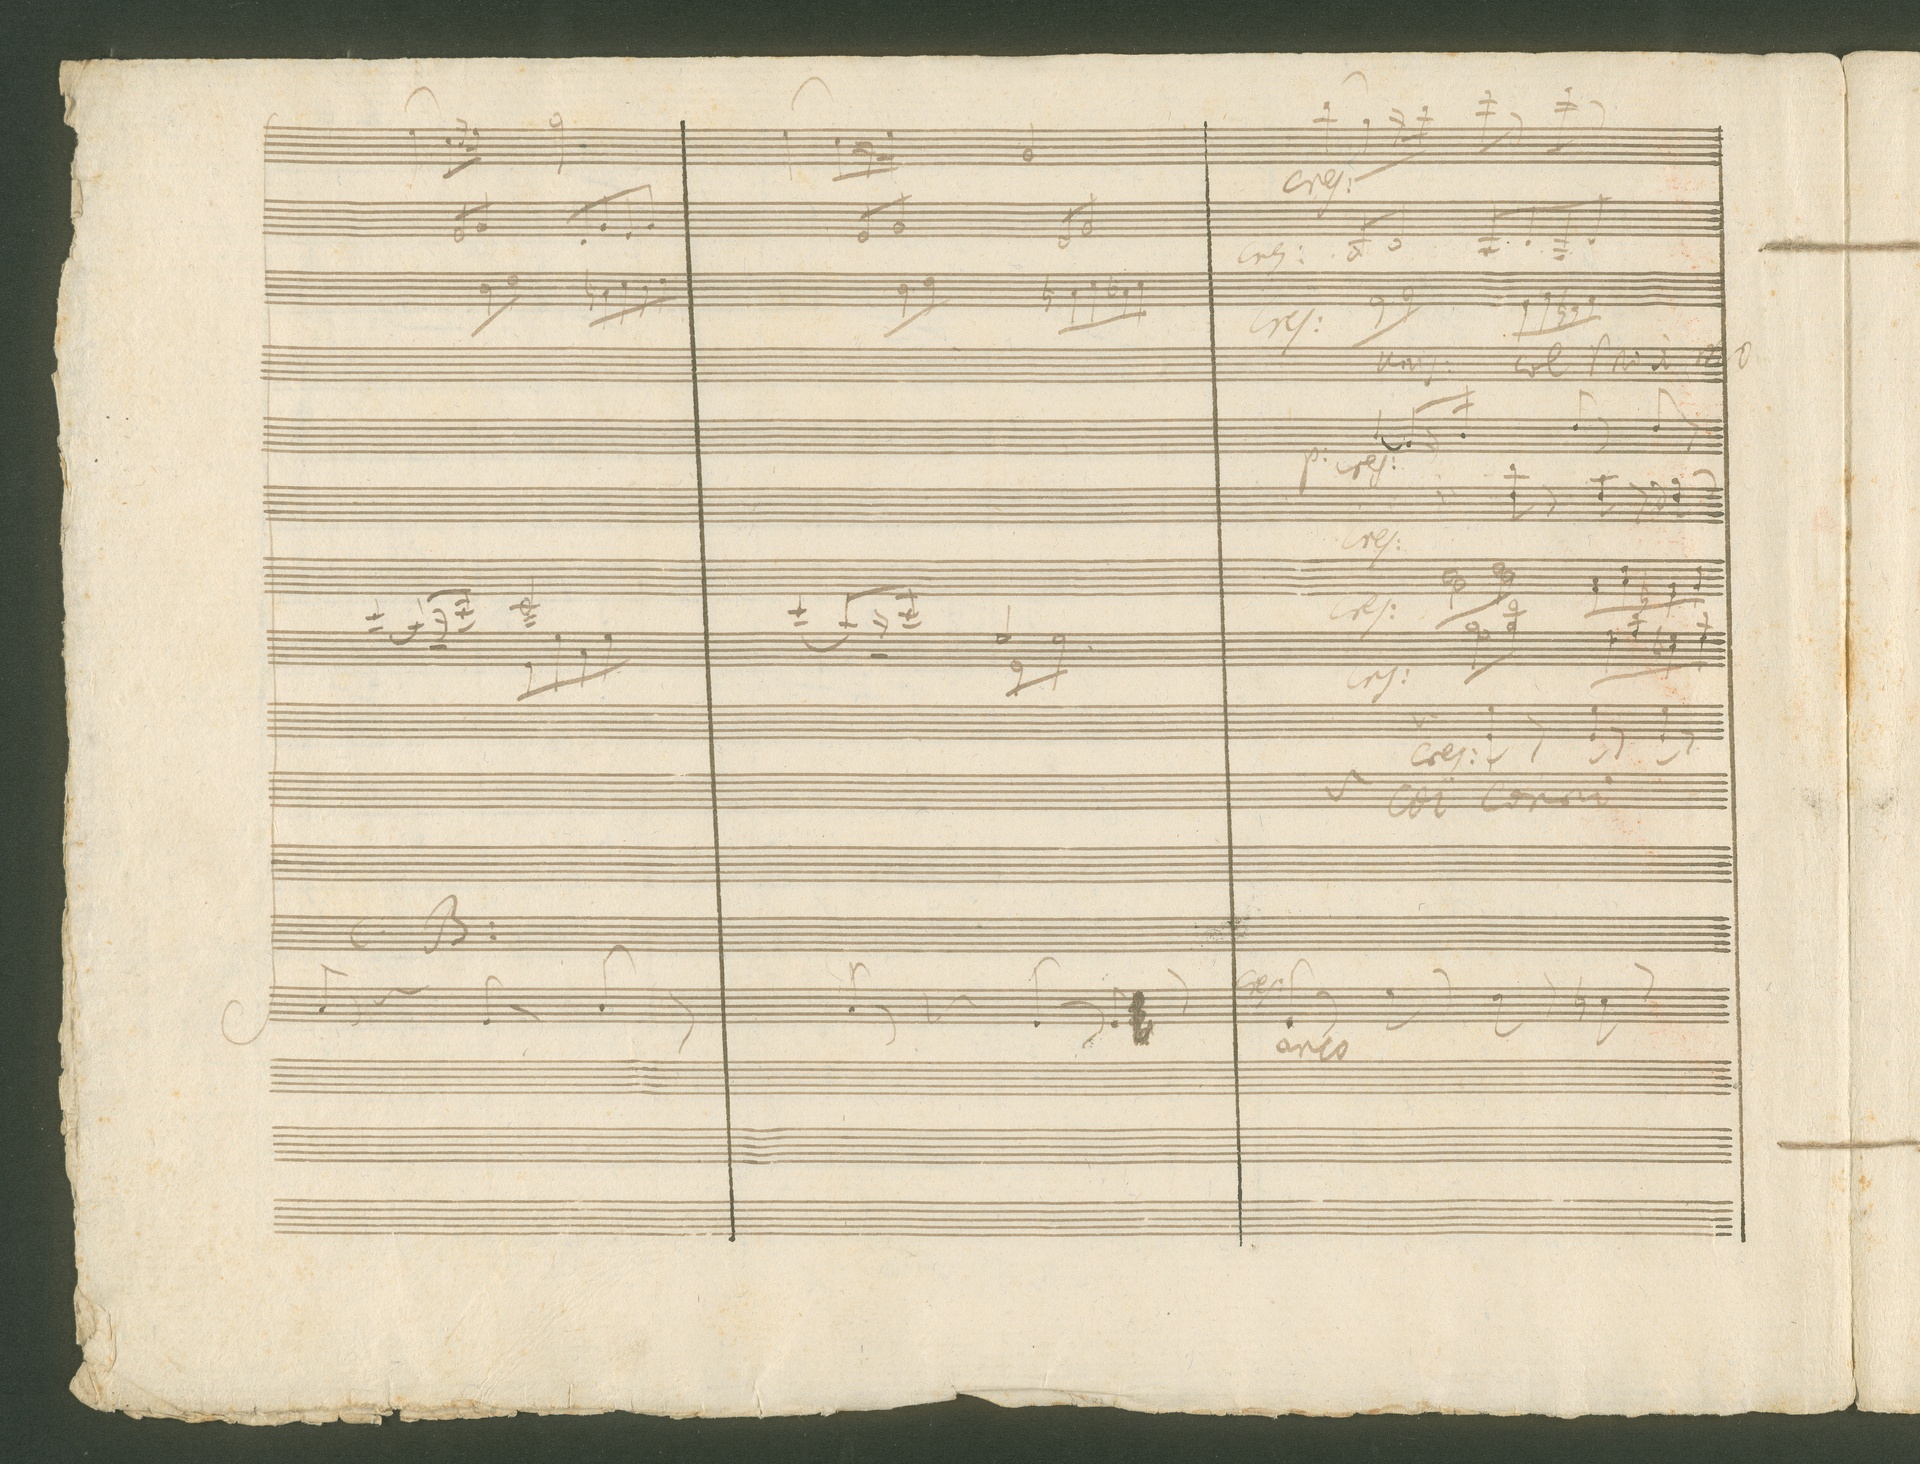 cres:
cres:
cres:
unis: col
p: cres:
cres:
cres:
cres:
cres:
Coi Corni
B:
cres:
arco